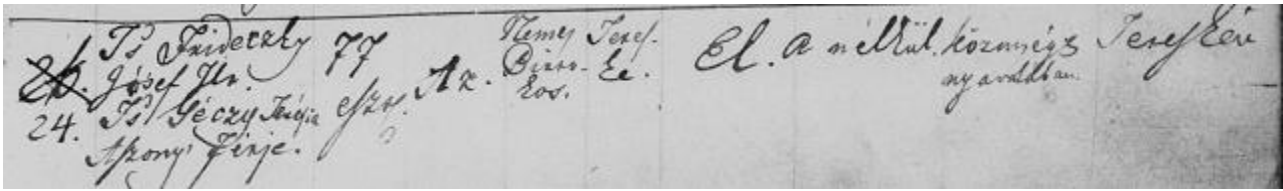 Ts Frideczky
József Úr.
24. Ts Géczy Terésia
Aszony Férje.
77
eszt.
Az.
Nemes
Birto-
kos.
Teres-
ke.
El.
a nélkül.
közönségs
nyavalában.
Tereskén